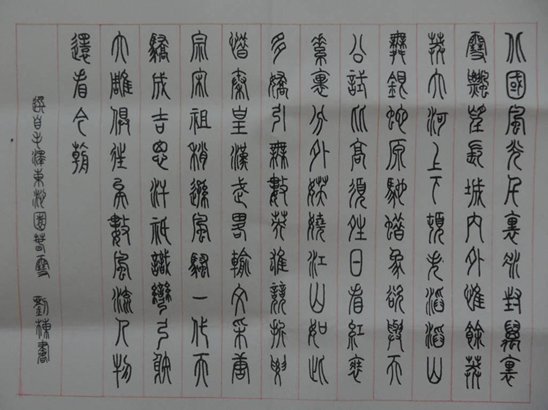 北國風光千裏冰封萬裏
雪飄望長城內外惟餘莽
莽大河上下頓失滔滔山
舞銀蛇原馳蠟象欲與天
公試比高須晴日看紅裝
素裹分外妖嬈江山如此
多嬌引無數英雄競折腰
惜秦皇漢武略輸文采唐
宗宋祖稍遜風騷一代天
驕成吉思汗祇識彎弓射
大雕俱往矣數風流人物
還看今朝
錄自毛澤東沁園春雪 劉棟書